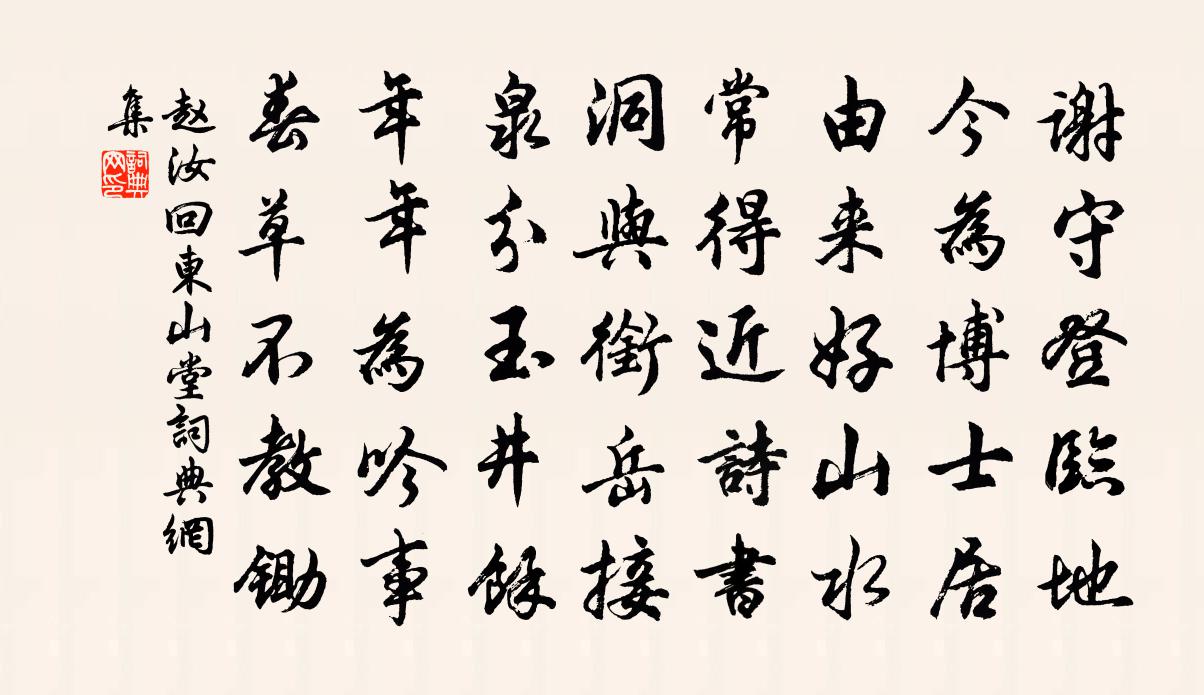 谢守登臨地
今為博士居
由来好山水
常得近詩書
洞與衡岳接
泉分玉井餘
年年為吟事
春草不教鋤
赵汝回東山堂詞典網
集
詞典
网印